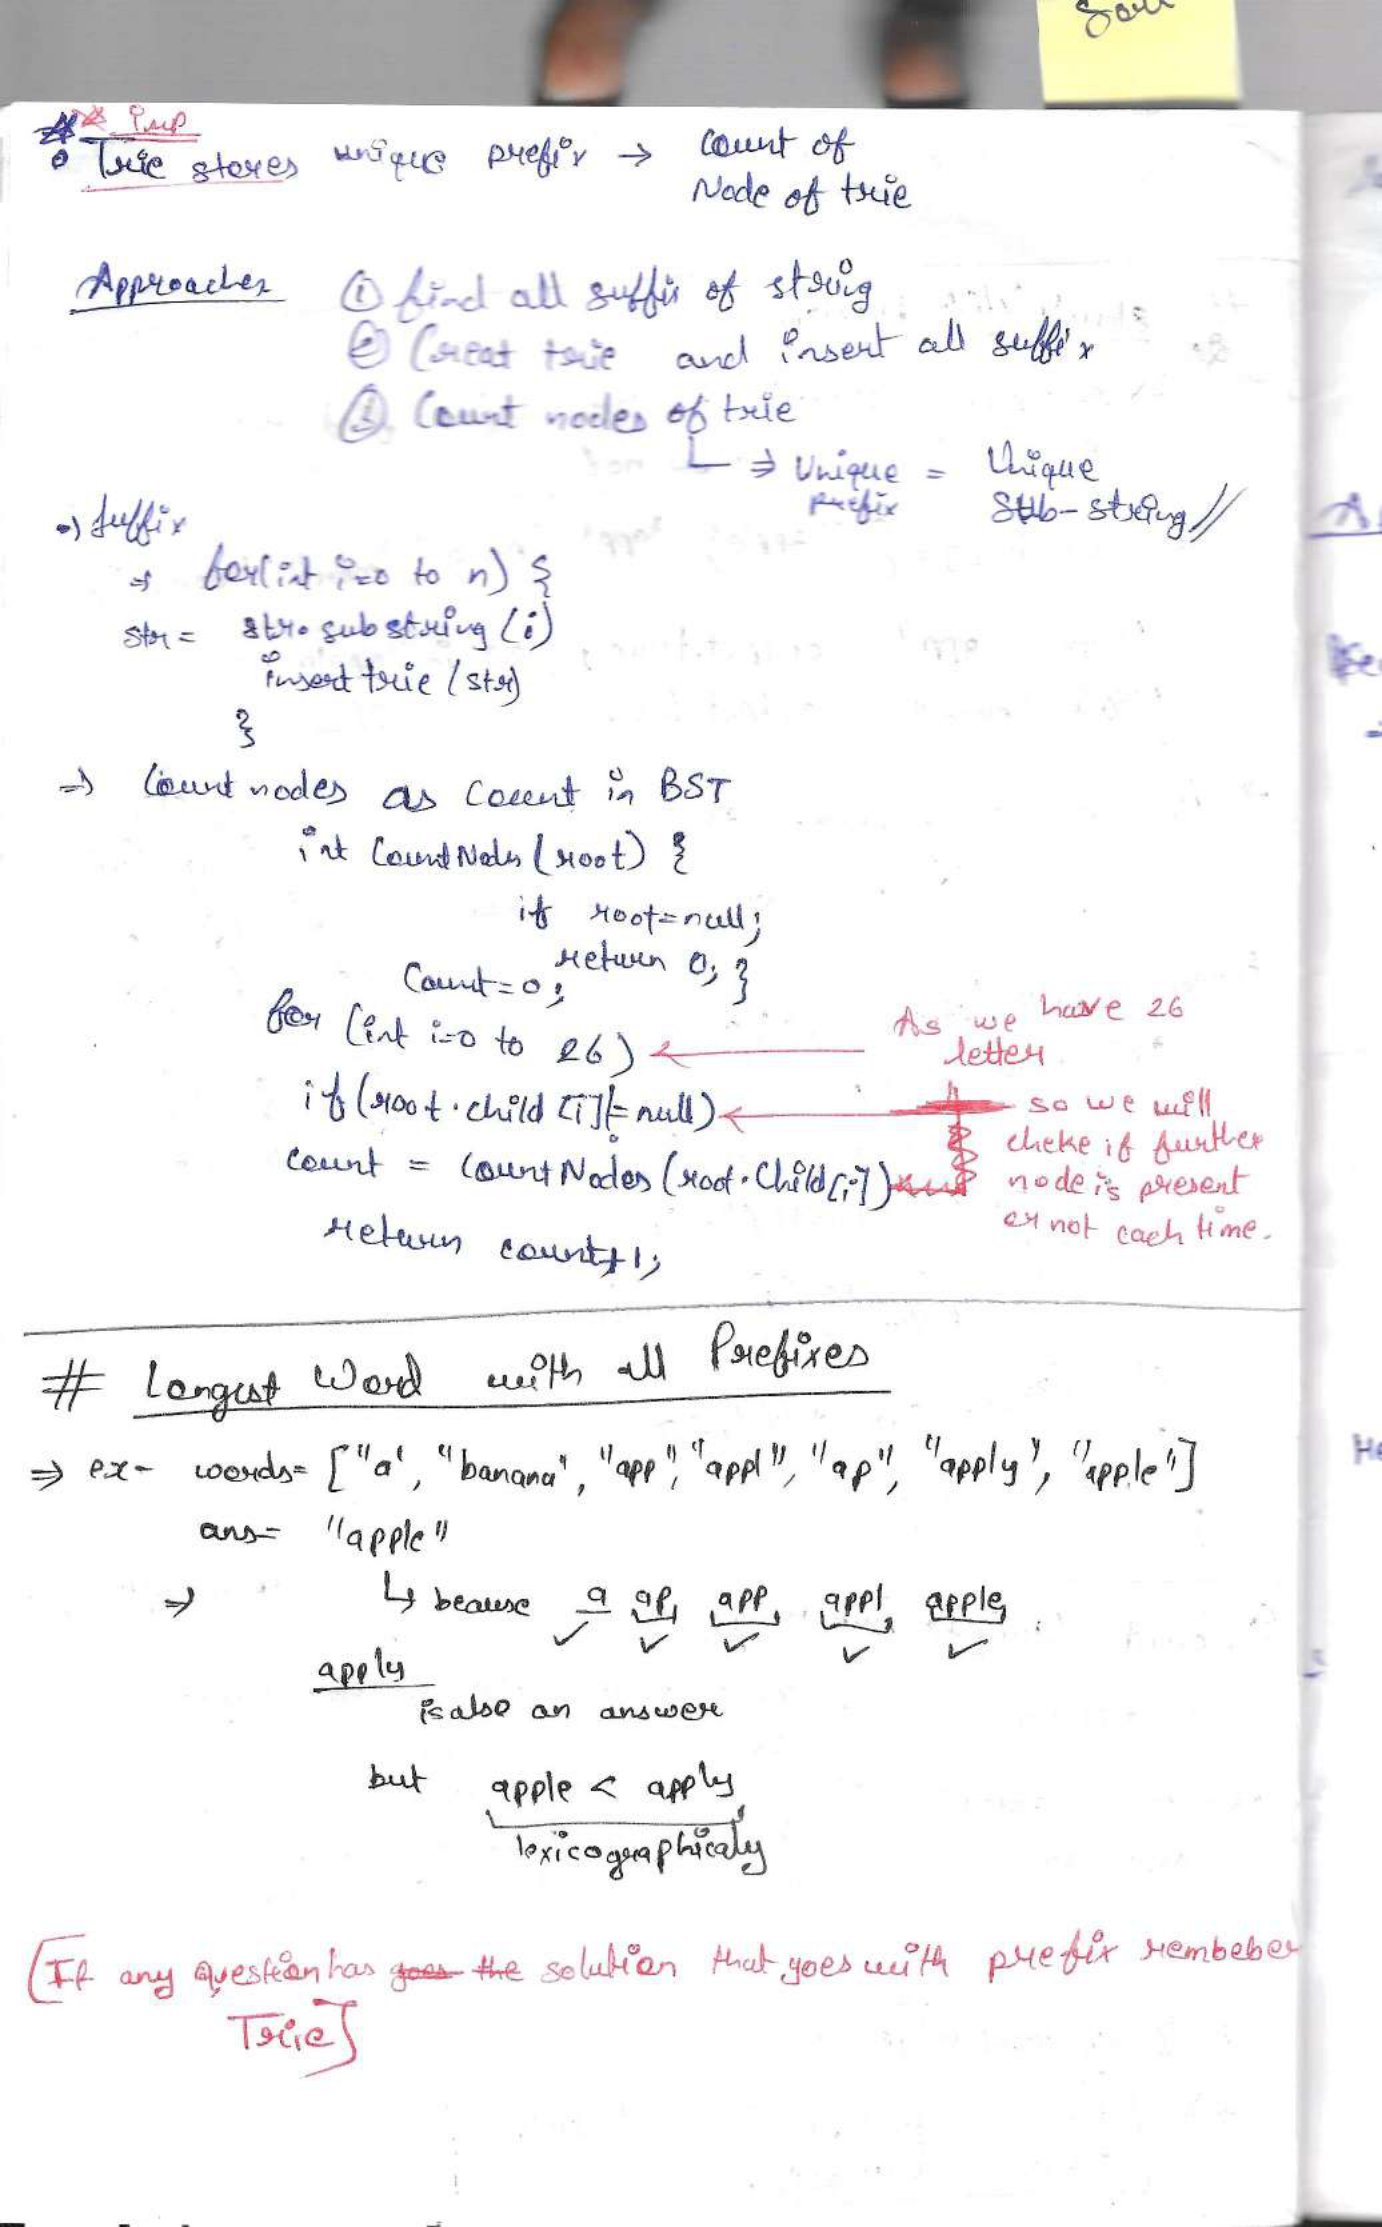 Imp
Trie stores unique prefix → Count of
Node of trie
Approaches ① find all suffix of string
② Creat trie and insert all suffix
③ Count nodes of trie
⇒ Unique prefix = Unique Sub-string //
⇒ Suffix
⇒ for(int i=0 to n) {
str = str.substring(i)
insert trie (str)
}
⇒ Count nodes as Count in BST
int CountNodes (root) {
if root=null;
return 0; }
Count=0;
for (int i=0 to 26) ← As we have 26
letter
if (root.child[i]!=null) ← so we will
cheke if further
count = countNodes (root.Child[i])
node is present
or not each time.
return count+1;
# Longest Word with all Prefixes
⇒ ex- words= ["a", "banana", "app", "appl", "ap", "apply", "apple"]
ans= "apple"
⇒ ↳ beause a ap app appl apple
✓ ✓ ✓ ✓ ✓
apply
is also an answer
but apple < apply
lexicographicaly
[If any question has goes the solution that goes with prefix rembeber
Trie]